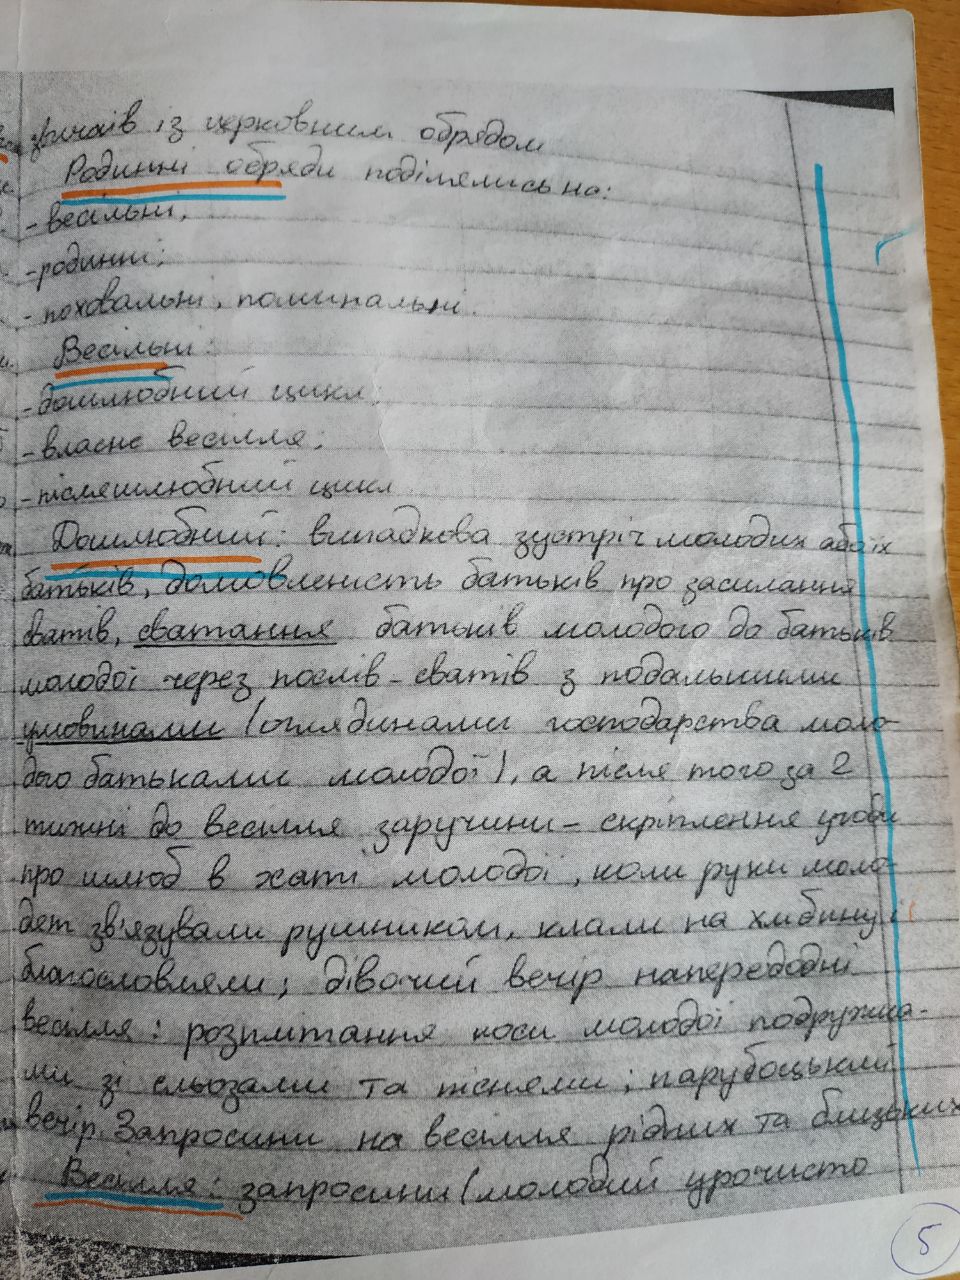 звичаїв із церковним обрядом
Родинні обряди поділялись на:
- весільні,
- родинні;
- поховальні, поминальні.
Весільні:
- дошлюбний цикл;
- власне весілля;
- післяшлюбний цикл
Дошлюбний: випадкова зустріч молодих або їх
батьків, домовленість батьків про засилання
сватів, сватання батьків молодого до батьків
молодої через послів-сватів з подальшими
умовинами (оглядинами господарства моло-
дого батьками молодої), а після того за 2
тижні до весілля заручини - скріплення угоди
про шлюб в хаті молодої, коли руки моло-
дят зв'язували рушником, клали на хлібину і
благословляли; дівочий вечір напередодні
весілля: розплітання коси молодої подружка-
ми зі сльозами та піснями; парубоцький
вечір. Запросини на весілля рідних та близьких
Весілля: запросини (молодий урочисто
5